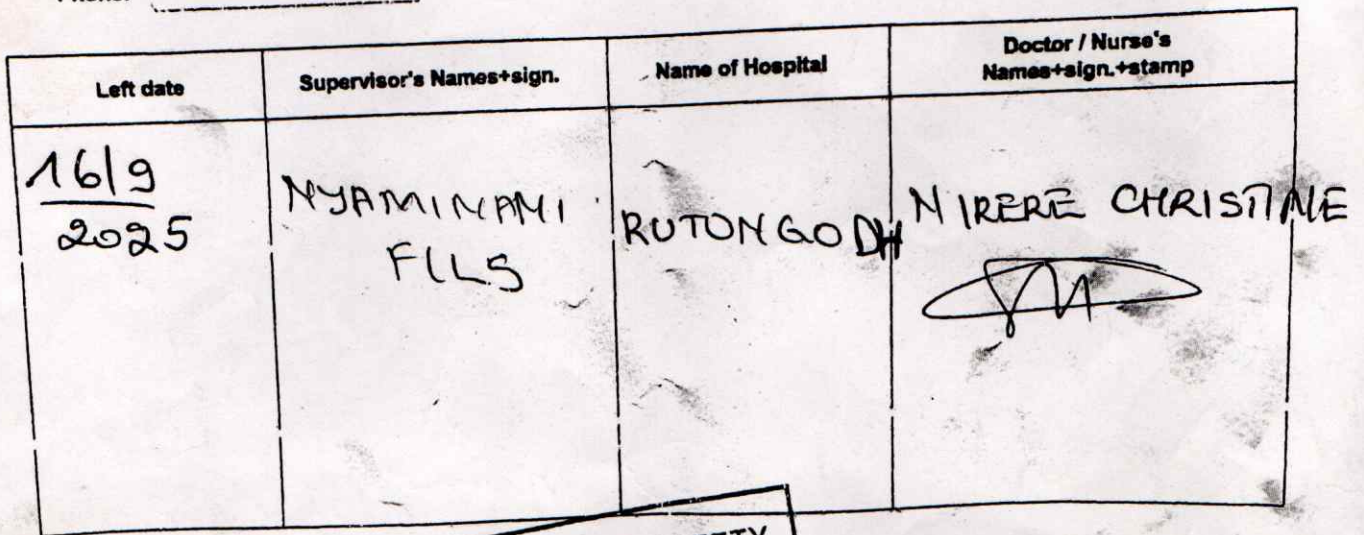 Left date
Supervisor's Names+sign.
Name of Hospital
Doctor / Nurse's
Names+sign.+stamp
16/9
2025
NYAMINANI
FILS
RUTONGO DH
NIRERE CHRISTINE